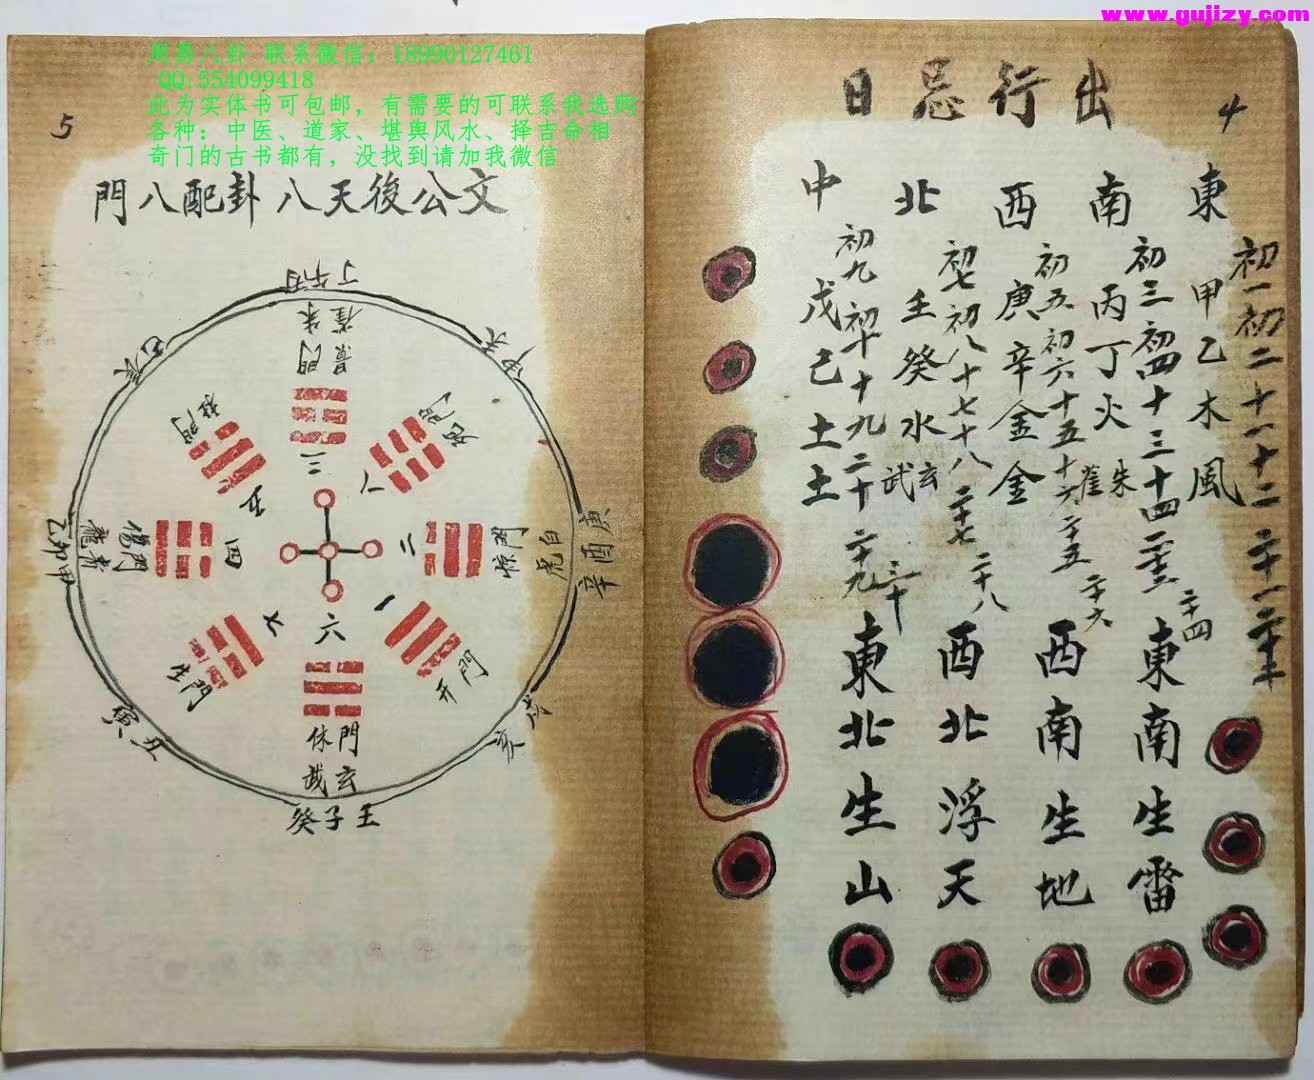 www.gujizy.com
周易八卦 联系微信：18990127461
QQ:554099418
此为实体书可包邮，有需要的可联系我选购
各种：中医、道家、堪舆风水、择吉命相
奇门的古书都有，没找到请加我微信
4
出行忌日
東
初一初二十一十二二十一二十二
甲乙木風
南
初三初四十三十四二十三二十四
丙丁火
朱雀
東南生雷
西
初五初六十五十六二十五二十六
庚辛金金
西南生地
北
初七初八十七十八二十七二十八
壬癸水
玄武
西北浮天
中
初九初十十九二十二十九三十
戊己土土
東北生山
5
文公後天八卦配八門
丙午丁
朱雀
景門
三
未申
死門
八
庚酉辛
白虎
惊門
二
戌亥
开門
一
壬子癸
玄武
休門
六
丑寅
生門
七
甲卯乙
青龍
傷門
四
辰巳
杜門
五